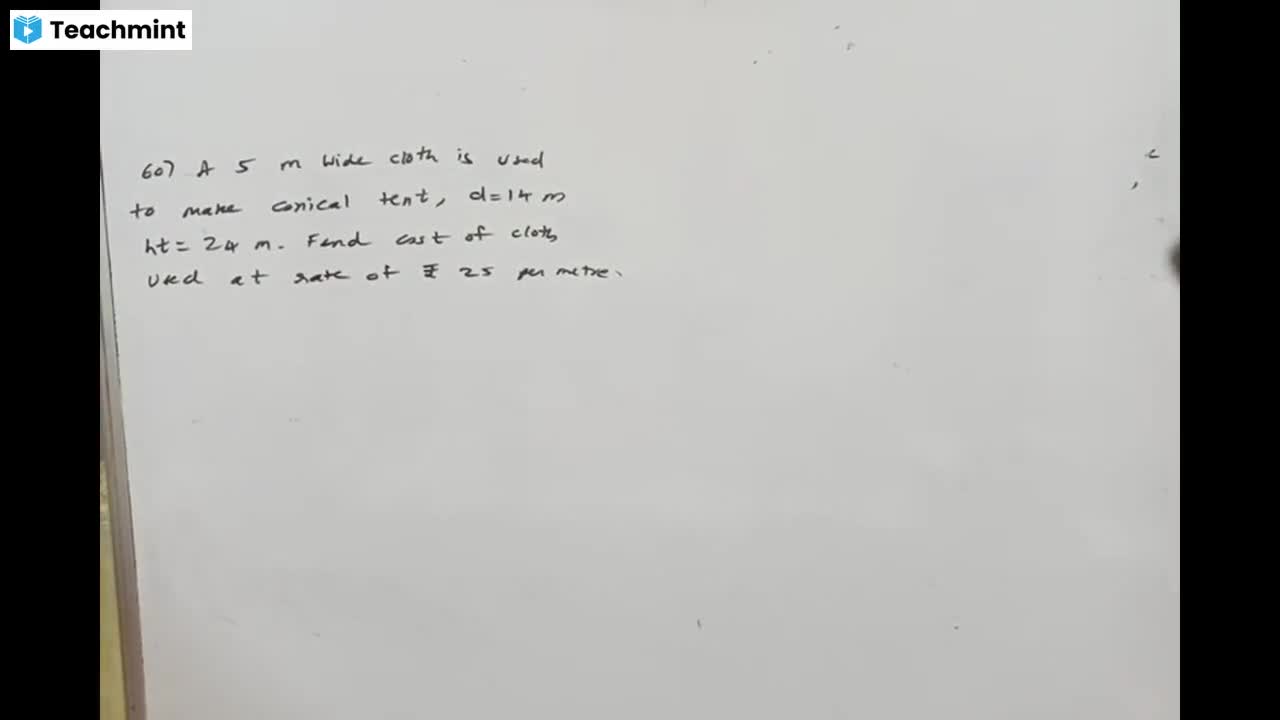 Teachmint
60) A 5 m wide cloth is used
to make conical tent, d=14 m
ht = 24 m. Find cost of cloth
used at rate of ₹ 25 per metre.